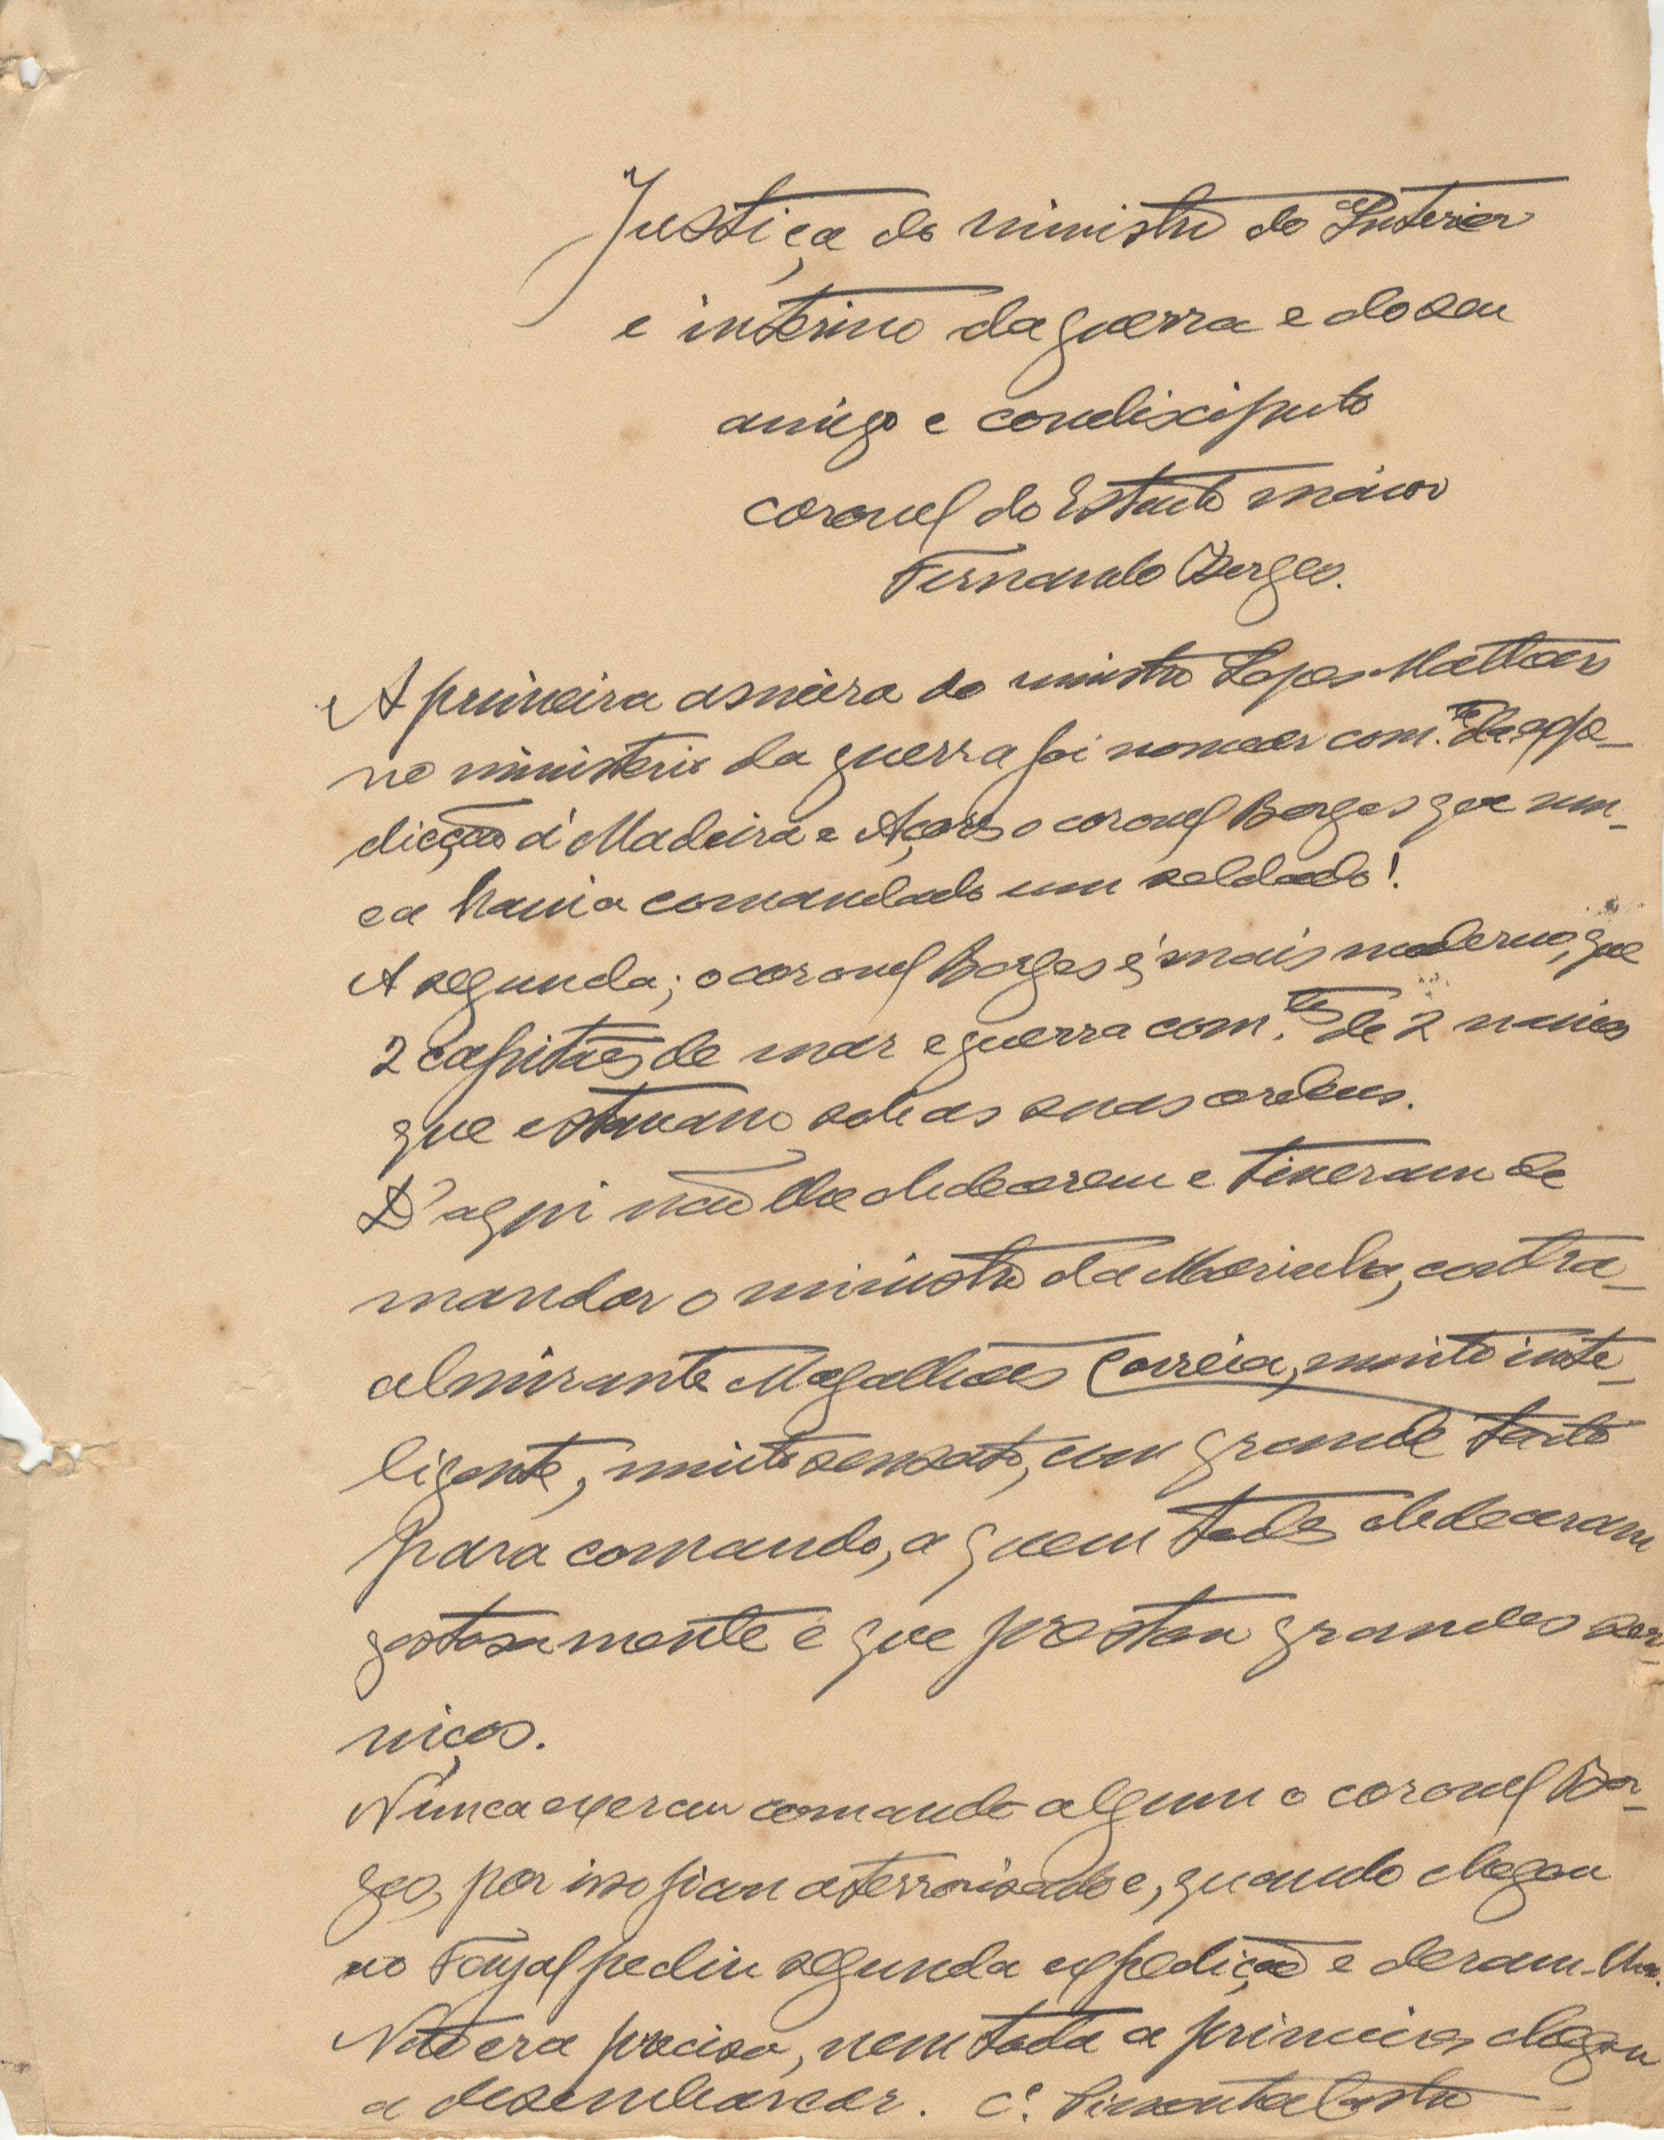 Justiça do ministro do Interior
e interino da guerra e do seu
amigo e condiscipulo
coronel do Estado maior
Fernando Borges.
A primeira asneira do ministro Lopes Matheus
no ministerio da guerra foi nomear com.te da expe-
dicção á Madeira e Açores o coronel Borges que nun-
ca havia comandado um soldado!
A segunda; o coronel Borges é mais moderno, que
2 capitães de mar e guerra com.tes de 2 navios
que estavam sob as suas ordens.
D'aqui não lhe obdecerem e tiveram de
mandar o ministro da Marinha, contra-
almirante Magalhães Correia, muito inte-
ligente, muito sensato, com grande tacto
para comando, a quem todos obdeceram
gostosamente e que prestou grandes ser-
viços.
Nunca exerceu comando algum o coronel Bor-
ges, por isso ficou aterrorisado e, quando chegou
ao Fayal pediu segunda expedição e deram-lha.
Não era preciso, nem toda a primeira chegou
a desembarcar. C.